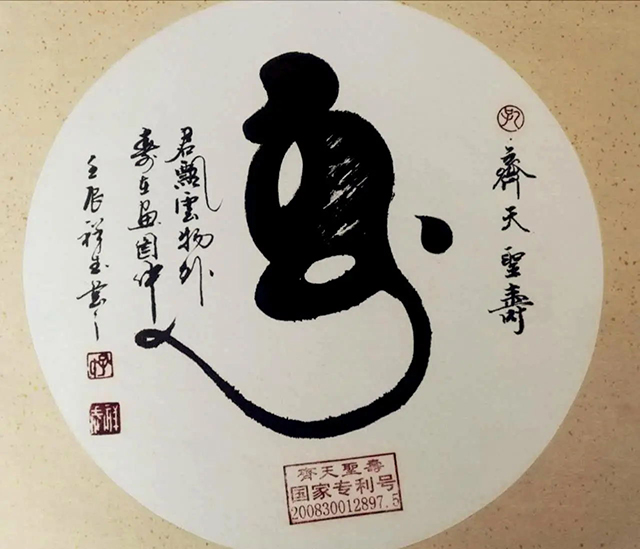 齊天聖壽
壽
君飄雲物外
壽在畫圖中
壬辰祥生書
齊天聖壽
国家专利号
200830012897.5